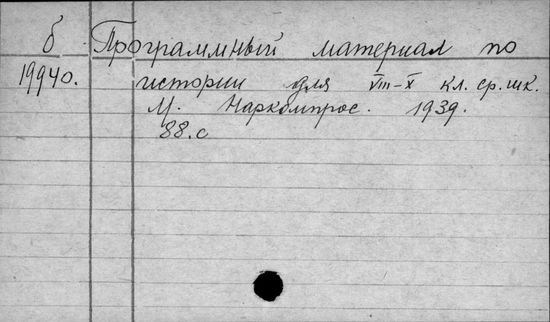 б Программный материал по
19940. истории для VIII-X кл. ср. шк.
М. Наркомпрос. 1939.
88.с